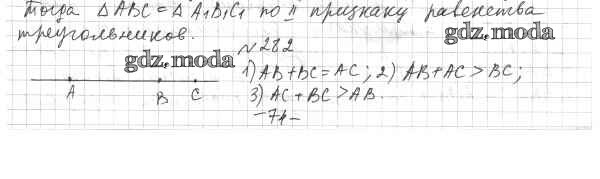 Тогда △ABC = △A₁B₁C₁ по II признаку равенства
треугольников.
gdz.moda
№282
gdz.moda
1) AB+BC=AC; 2) AB+AC>BC;
A B C
3) AC+BC>AB.
-71-